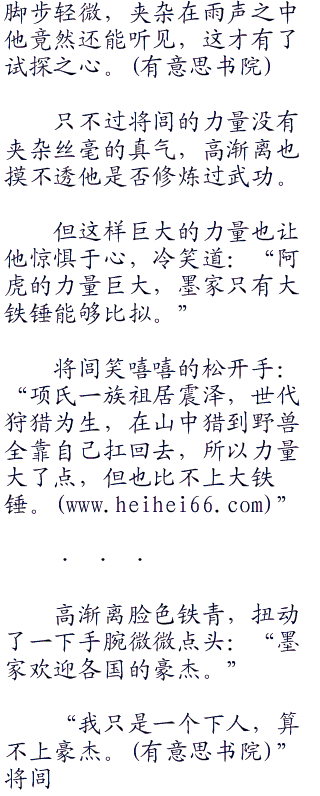 脚步轻微，夹杂在雨声之中
他竟然还能听见，这才有了
试探之心。(有意思书院)
只不过将闾的力量没有
夹杂丝毫的真气，高渐离也
摸不透他是否修炼过武功。
但这样巨大的力量也让
他惊惧于心，冷笑道：“阿
虎的力量巨大，墨家只有大
铁锤能够比拟。”
将闾笑嘻嘻的松开手：
“项氏一族祖居震泽，世代
狩猎为生，在山中猎到野兽
全靠自己扛回去，所以力量
大了点，但也比不上大铁
锤。(www.heihei66.com)”
. . .
高渐离脸色铁青，扭动
了一下手腕微微点头：“墨
家欢迎各国的豪杰。”
“我只是一个下人，算
不上豪杰。(有意思书院)”
将闾